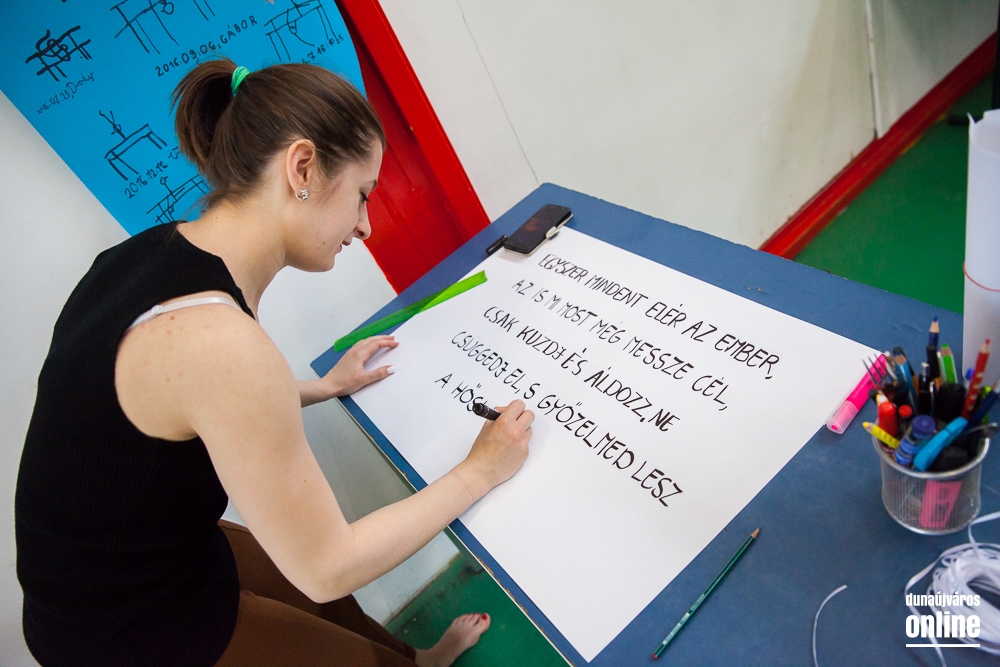 2016.09.06. GÁBOR
2016.12.12.
EGYSZER MINDENT ELÉR AZ EMBER,
AZ IS MI MOST MÉG MESSZE CÉL,
CSAK KÜZDJ ÉS ÁLDOZZ, NE
CSÜGGEDJ EL, S GYŐZELMED LESZ
A HŐS
dunaújváros
online